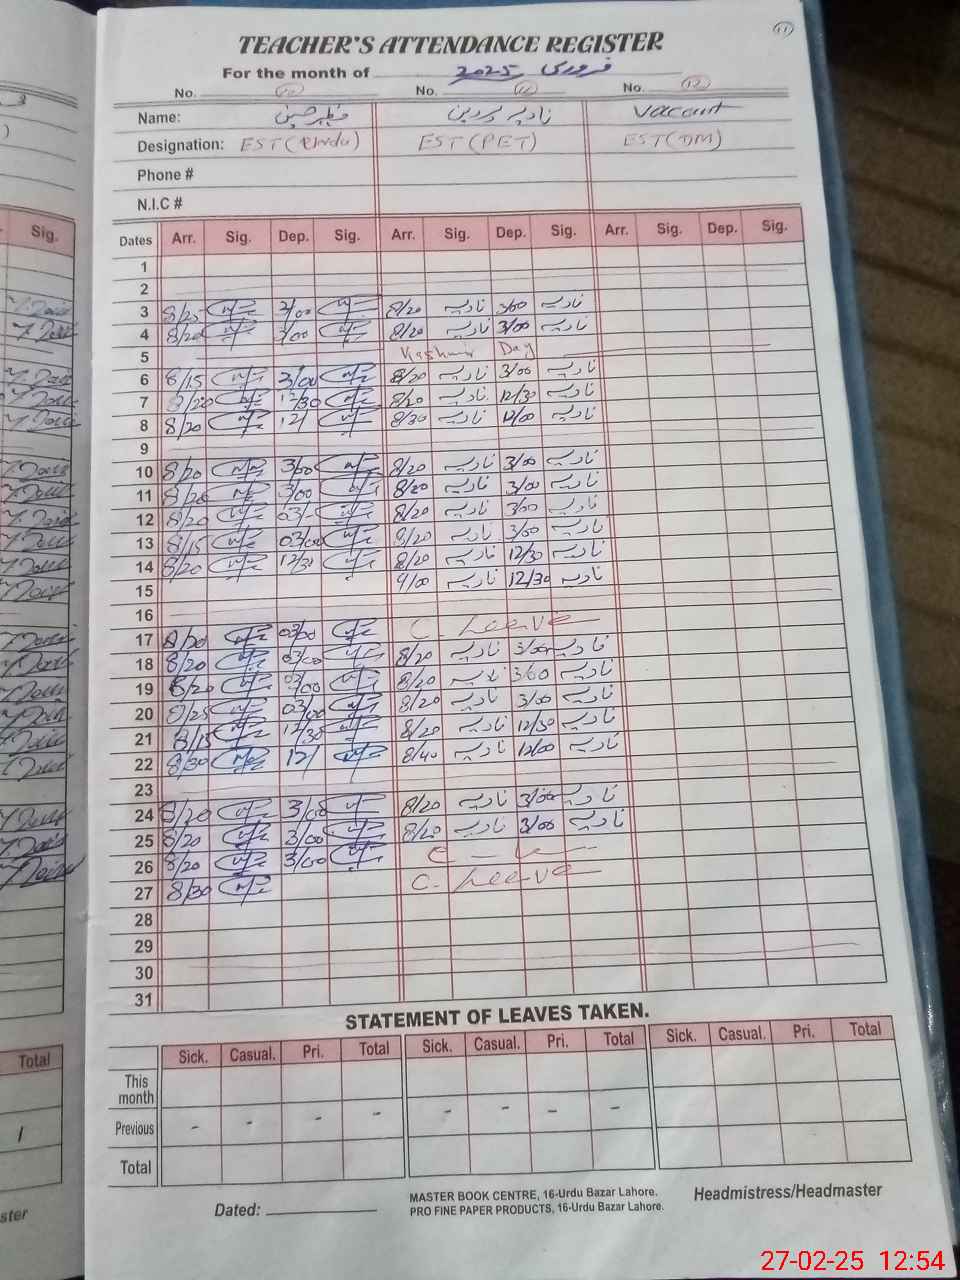 11
TEACHER'S ATTENDANCE REGISTER
For the month of فروری 2025
No. 10 No. 11 No. 12
Name: نادیہ پروین Vacant
Designation: EST (Urdu) EST (PET) EST (DM)
Phone #
N.I.C #
Dates Arr. Sig. Dep. Sig. Arr. Sig. Dep. Sig. Arr. Sig. Dep. Sig.
1
2
3 8/25 3/00 8/20 نادیہ 3/00 نادیہ
4 8/20 3/00 8/20 نادیہ 3/00 نادیہ
5 Kashmir Day
6 8/15 3/00 8/20 نادیہ 3/00 نادیہ
7 8/20 12/30 8/20 نادیہ 12/30 نادیہ
8 8/20 12/ 8/30 نادیہ 12/00 نادیہ
9
10 8/20 3/00 8/20 نادیہ 3/00 نادیہ
11 8/20 3/00 8/20 نادیہ 3/00 نادیہ
12 8/20 03/ 8/20 نادیہ 3/00 نادیہ
13 8/15 03/00 8/20 نادیہ 3/00 نادیہ
14 8/20 12/30 8/20 نادیہ 12/30 نادیہ
15 9/00 نادیہ 12/30 نادیہ
16
17 8/20 03/00 C. Leave
18 8/20 03/00 8/20 نادیہ 3/00 نادیہ
19 8/20 03/00 8/20 نادیہ 3/00 نادیہ
20 8/25 03/00 8/20 نادیہ 3/00 نادیہ
21 8/15 12/30 8/20 نادیہ 12/30 نادیہ
22 8/30 12/ 8/40 نادیہ 12/00 نادیہ
23
24 8/20 3/00 8/20 نادیہ 3/00 نادیہ
25 8/20 3/00 8/20 نادیہ 3/00 نادیہ
26 8/20 3/00 C - L
27 8/30 C. Leave
28
29
30
31
STATEMENT OF LEAVES TAKEN.
Sick. Casual. Pri. Total Sick. Casual. Pri. Total Sick. Casual. Pri. Total
This month
Previous - - - - - - - -
Total
Dated:
MASTER BOOK CENTRE, 16-Urdu Bazar Lahore.
PRO FINE PAPER PRODUCTS, 16-Urdu Bazar Lahore.
Headmistress/Headmaster
Sig.
Total
1
27-02-25 12:54